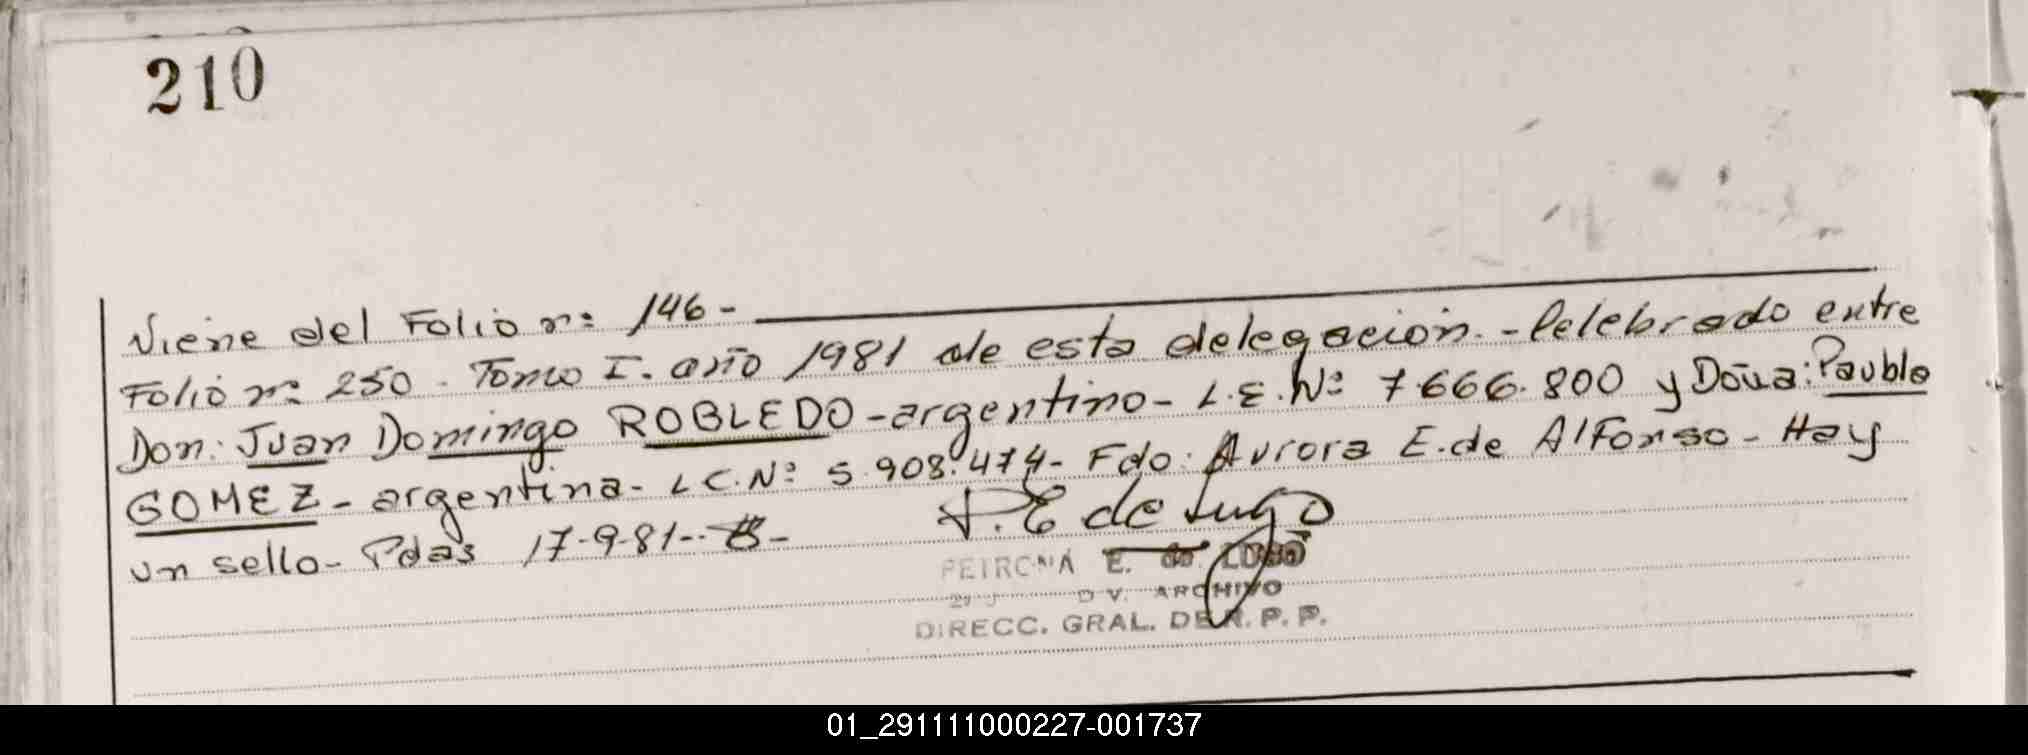 210
Viene del Folio nº 146-
Folio nº 250. Tomo I. año 1981 de esta delegación.- Celebrado entre
Don: Juan Domingo ROBLEDO-argentino- L.E.Nº 7.666.800 y Doña: Paubla
GOMEZ- argentina- LC.Nº 5.908.474- Fdo: Aurora E. de Alfonso- Hay
un sello- Pdas 17-9-81--
P. E de Lugo
PETRONA E. de LUGO
DIV. ARCHIVO
DIRECC. GRAL. DE R. P. P.
01_291111000227-001737